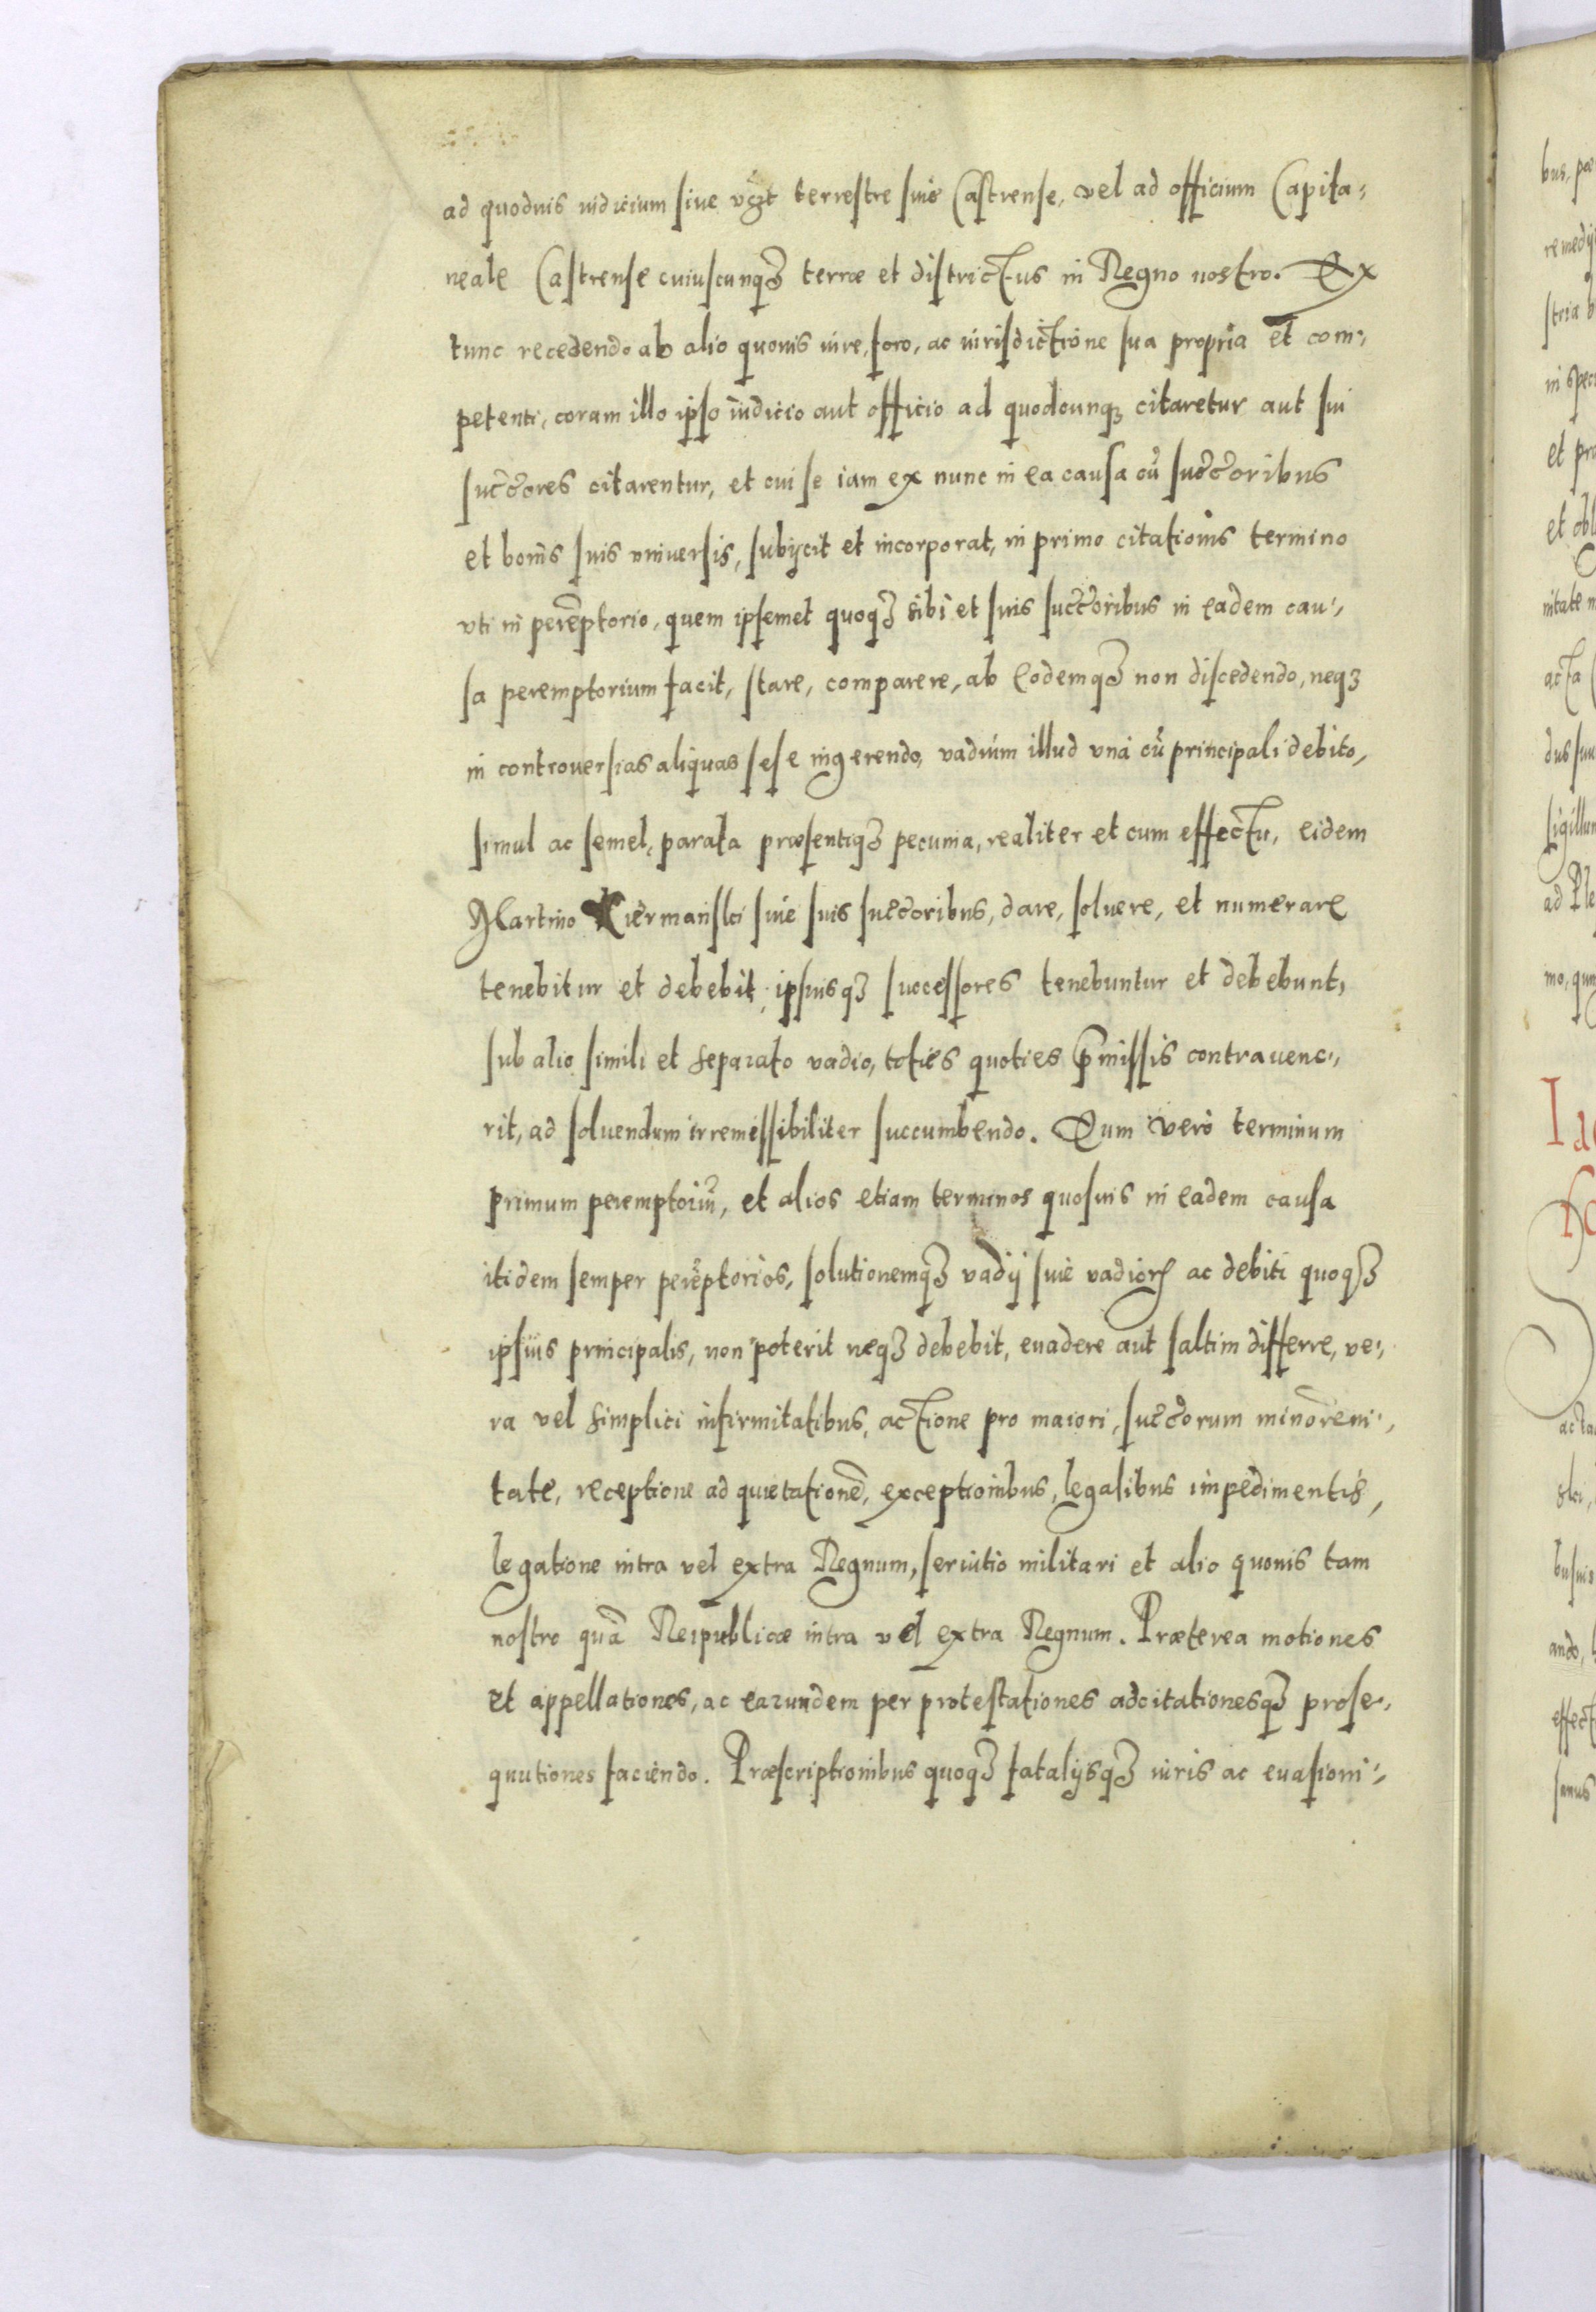 ad quoduis iudicium siue vtzt terrestre siue Castrense, vel ad officium Capita-
neale Castrense cuiuscunq3 terræ et districtus in Regno nostro. Ex
tunc recedendo ab alio quouis iure, foro, ac iurisdictione sua propria et com-
petenti, coram illo ipso iudicio aut officio ad quodcunq3 citaretur aut sui
succōres citarentur, et cui se iam ex nunc in ea causa cū succōribus
et bonis suis vniuersis, subijcit et incorporat, in primo citationis termino
vti in perēptorio, quem ipsemet quoq3 sibi et suis succōribus in eadem cau-
sa peremptorium facit, stare, comparere, ab eodemq3 non discedendo, neq3
in controuersias aliquas sese ingerendo, vadium illud vná cū principali debito,
simul ac semel, parata præsentiq3 pecunia, realiter et cum effectu, eidem
Martino siue suis succōribus, dare, soluere, et numerare
tenebitur et debebit, ipsiusq3 successores tenebuntur et debebunt,
sub alio simili et separato vadio, toties quoties p̄missis contrauene-
rit, ad soluendum irremissibiliter succumbendo. Quem verò terminum
primum peremptoriū, et alios etiam terminos quosuis in eadem causa
itidem semper perēptorios, solutionemq3 vadij siue vadiorꝝ ac debiti quoq3
ipsius principalis, non poterit neq3 debebit, euadere aut saltim differre, ve-
ra vel simplici infirmitatibus, actione pro maiori, succōrum minoreni-
tate, receptione ad quietationē, exceptionibus, legalibus impedimentis,
legatione intra vel extra Regnum, seruitio militari et alio quouis tam
nostro quā Reipublicæ intra vel extra Regnum. Præterea motiones
et appellationes, ac earundem per protestationes adcitationesq3 prose-
quutiones faciendo. Præscriptionibus quoq3 fatalijsq3 iuris ac euasioni-